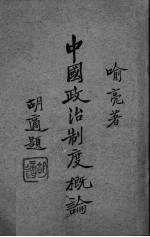 喻亮著
中國政治制度概論
胡適題